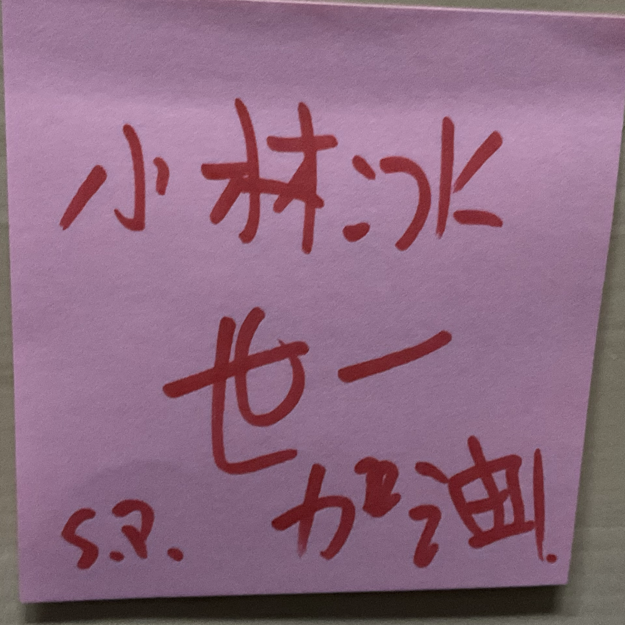 小林冰
世一
s.a. 加油!